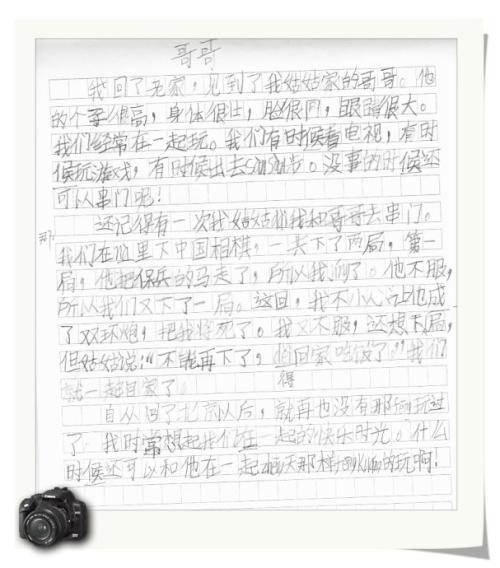 哥哥
我回了老家,见到了我姑姑家的哥哥。他
的个子很高,身体很壮,脸很圆,眼睛很大。
我们经常在一起玩。我们有时候看电视,有时
候玩游戏,有时候出去步。没事的时候还
可以串门呢!
还记得有一次我姑姑我和哥哥去串门。
我们在里下中国相棋,一共下了两局,第一
局,他把保兵的马走了,所以我了。他不服,
所以我们又下了一局。这回,我不小心让他成
了双环炮,把我将死了。我又不服,还想下局,
但姑姑说:“不能再下了,回家吃饭了。”我们
得
就一起回家了。
自从回了北京以后,就再也没有那样玩过
了。我时常想起我们在一起的快乐时光。什么
时候还可以和他在一起天那样的玩啊!